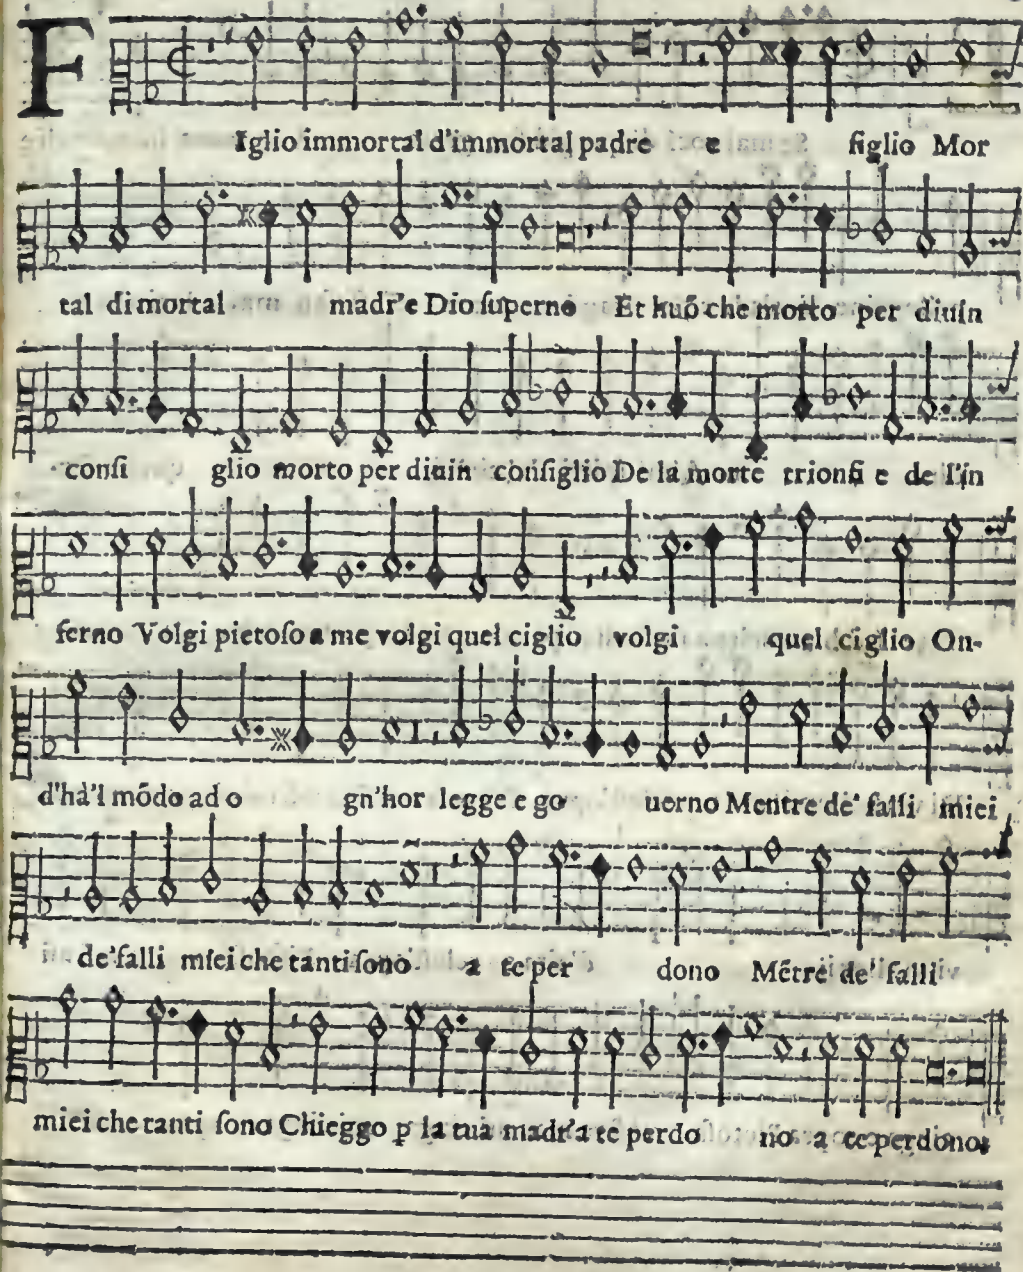 FIglio immortal d'immortal padre e figlio Mor
tal di mortal madr'e Dio ſuperno Et huõ che morto per diuin
conſi glio morto per diuin conſiglio De la morte trionfi e de l'in
ferno Volgi pietoſo a me volgi quel ciglio volgi quel ciglio On-
d'hà'l mõdo ad o gn'hor legge e go uerno Mentre de' falli miei
de' falli miei che tanti ſono a te per dono Mẽtre de' falli
miei che tanti ſono Chieggo ꝑ la tua madr'a te perdo no a te perdono.